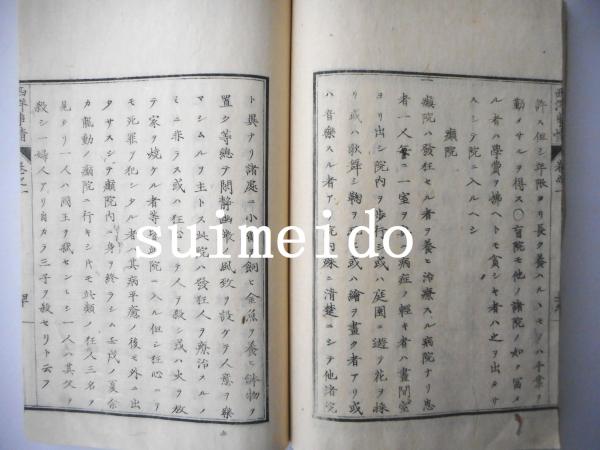 許ス但シ年限ヨリ長ク養ハルヽモノハ手業ヲ
勤メサルヲ得ス○盲院モ他ノ諸院ノ如ク富メ
ル者ハ學費ヲ拂ヘトモ貧シキ者ハ之ヲ出タサ
スシテ院ニ入ルヘシ
癲院
癲院ハ發狂セル者ヲ養ヒ治療スル病院ナリ患
者一人毎ニ一室ヲ 病症ノ輕キ者ハ晝間室
ヨリ出シ院内ヲ歩行 或ハ庭園ニ遊ヒ花ヲ採
リ或ハ歌舞シ鞠ヲ 或ハ繪ヲ畫ク者アリ或
ハ音樂スル者アリ院内殊ニ清楚ニシテ他諸院
ト異ナリ諸處ニ小 飼ヒ金魚ヲ養ヒ鉢物ヲ
置ク等總テ閑靜幽 ノ風致ヲ設ケテ人意ヲ樂
マシムルヲ主トス此院ハ發狂人ヲ療治スルノ
ミニ非ラス或ハ狂 テ人ヲ殺シ或ハ火ヲ放
テ家ヲ燒ケル者等 院ニ入ル但シ狂心ニテ
モ死罪ヲ犯シタル者ハ其病平癒ノ後モ外ニ出
タサスシテ癲院内ニ身ヲ終ラシム壬戌ノ夏余
カ龍動ノ癲院ニ行キシ時モ此類ノ狂人三名ヲ
見タリ一人ハ國王ヲ弑セントシ一人ハ其父ヲ
殺シ一婦人アリ自カラ三子ヲ殺セリト云フ
西洋事情
卷之一
suimeido